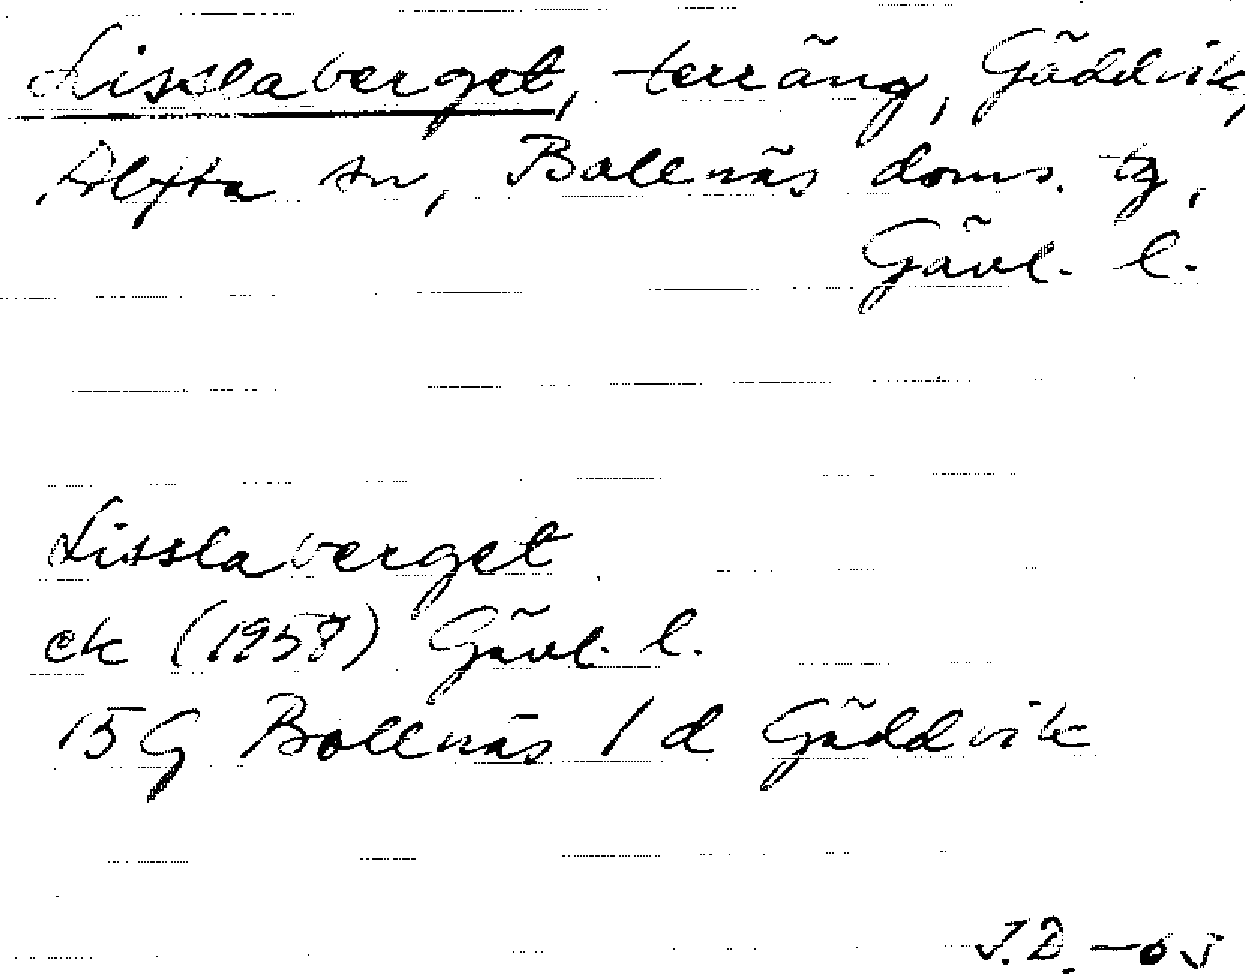 Lisslaberget, terräng, Gäddvik,
Alfta sn, Bollnäs doms. tg,
Gävl. l.
Lisslaberget
ek (1958) Gävl. l.
15G Bollnäs 1 d Gäddvik
J.D. -65